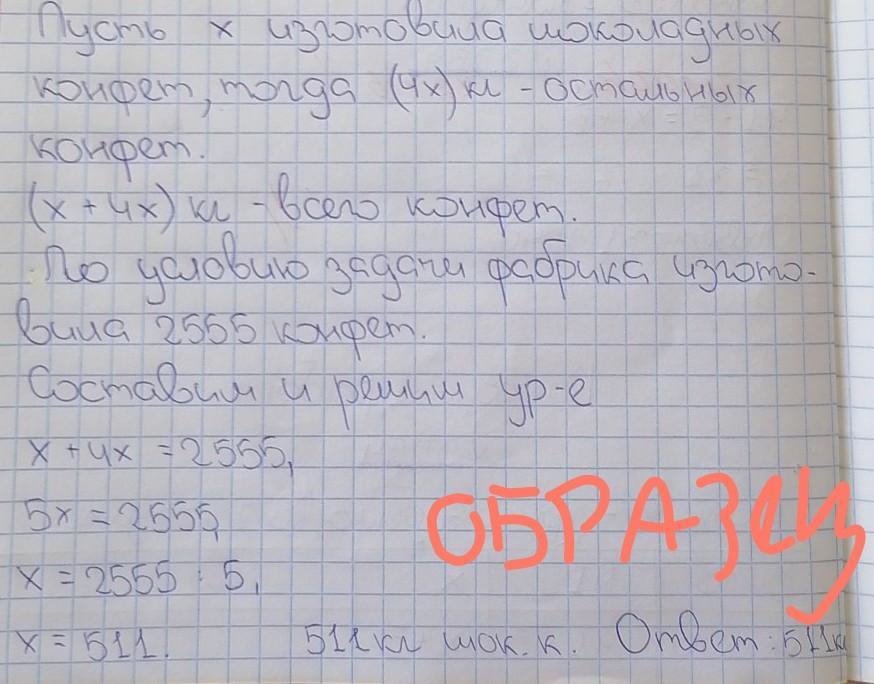 Пусть х изготовила шоколадных
конфет, тогда (4х) кг - остальных
конфет.
(х + 4х) кг - всего конфет.
По условию задачи фабрика изгото-
вила 2555 конфет.
Составим и решим ур-е
х + 4х = 2555,
5х = 2555,
х = 2555 : 5,
х = 511. 511 кг шок. к. Ответ: 511 кг
ОБРАЗЕЦ